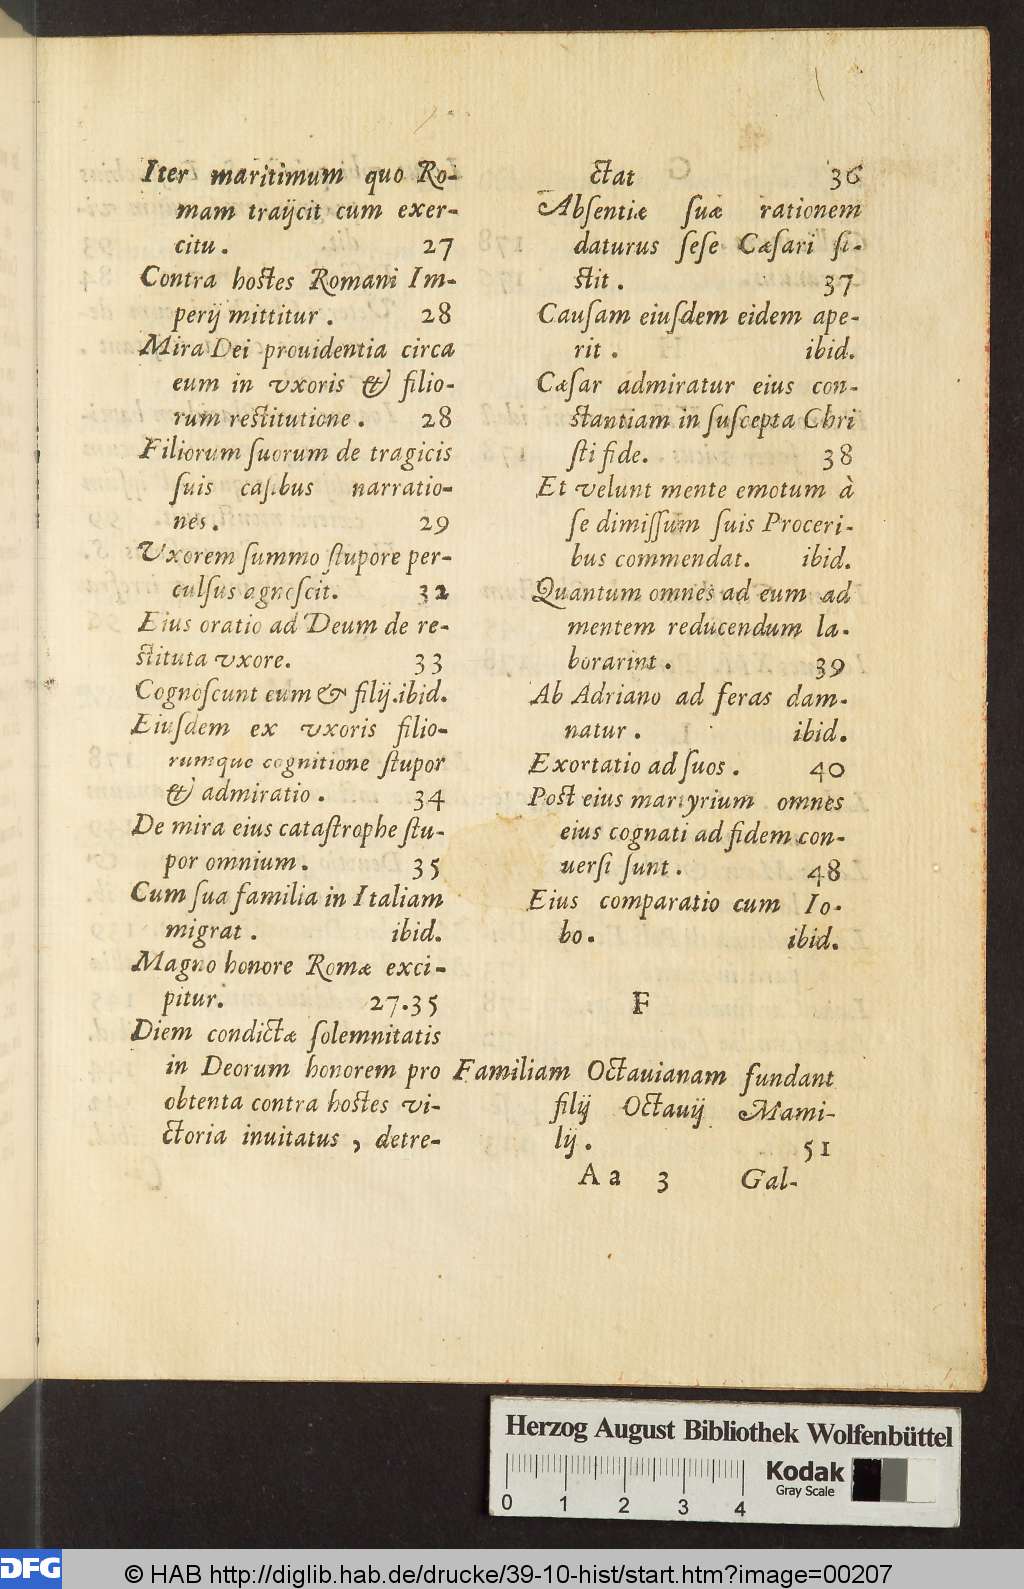 Iter maritimum quo Ro-
mam traijcit cum exer-
citu. 27
Contra hostes Romani Im-
perij mittitur. 28
Mira Dei prouidentia circa
eum in vxoris & filio-
rum restitutione. 28
Filiorum ſuorum de tragicis
ſuis caſibus narratio-
nes. 29
Vxorem ſummo ſtupore per-
culſus agnoſcit. 32
Eius oratio ad Deum de re-
ſtituta vxore. 33
Cognoſcunt eum & filij. ibid.
Eiuſdem ex vxoris filio-
rumque cognitione ſtupor
& admiratio. 34
De mira eius cataſtrophe ſtu-
por omnium. 35
Cum ſua familia in Italiam
migrat. ibid.
Magno honore Romæ exci-
pitur. 27.35
Diem condictæ ſolemnitatis
in Deorum honorem pro
obtenta contra hostes vi-
ctoria inuitatus, detre-
ctat 36
Abſentiæ ſuæ rationem
daturus ſeſe Cæſari ſi-
ſtit. 37
Cauſam eiuſdem eidem ape-
rit. ibid.
Cæſar admiratur eius con-
ſtantiam in ſuſcepta Chri
ſti fide. 38
Et velunt mente emotum à
ſe dimiſſum ſuis Proceri-
bus commendat. ibid.
Quantum omnes ad eum ad
mentem reducendum la-
borarint. 39
Ab Adriano ad feras dam-
natur. ibid.
Exortatio ad ſuos. 40
Post eius martyrium omnes
eius cognati ad fidem con-
uerſi ſunt. 48
Eius comparatio cum Io-
bo. ibid.
F
Familiam Octauianam fundant
filij Octauij Mami-
lij. 51
Aa 3 Gal-
Herzog August Bibliothek Wolfenbüttel
Kodak
Gray Scale
0 1 2 3 4
DFG © HAB http://diglib.hab.de/drucke/39-10-hist/start.htm?image=00207